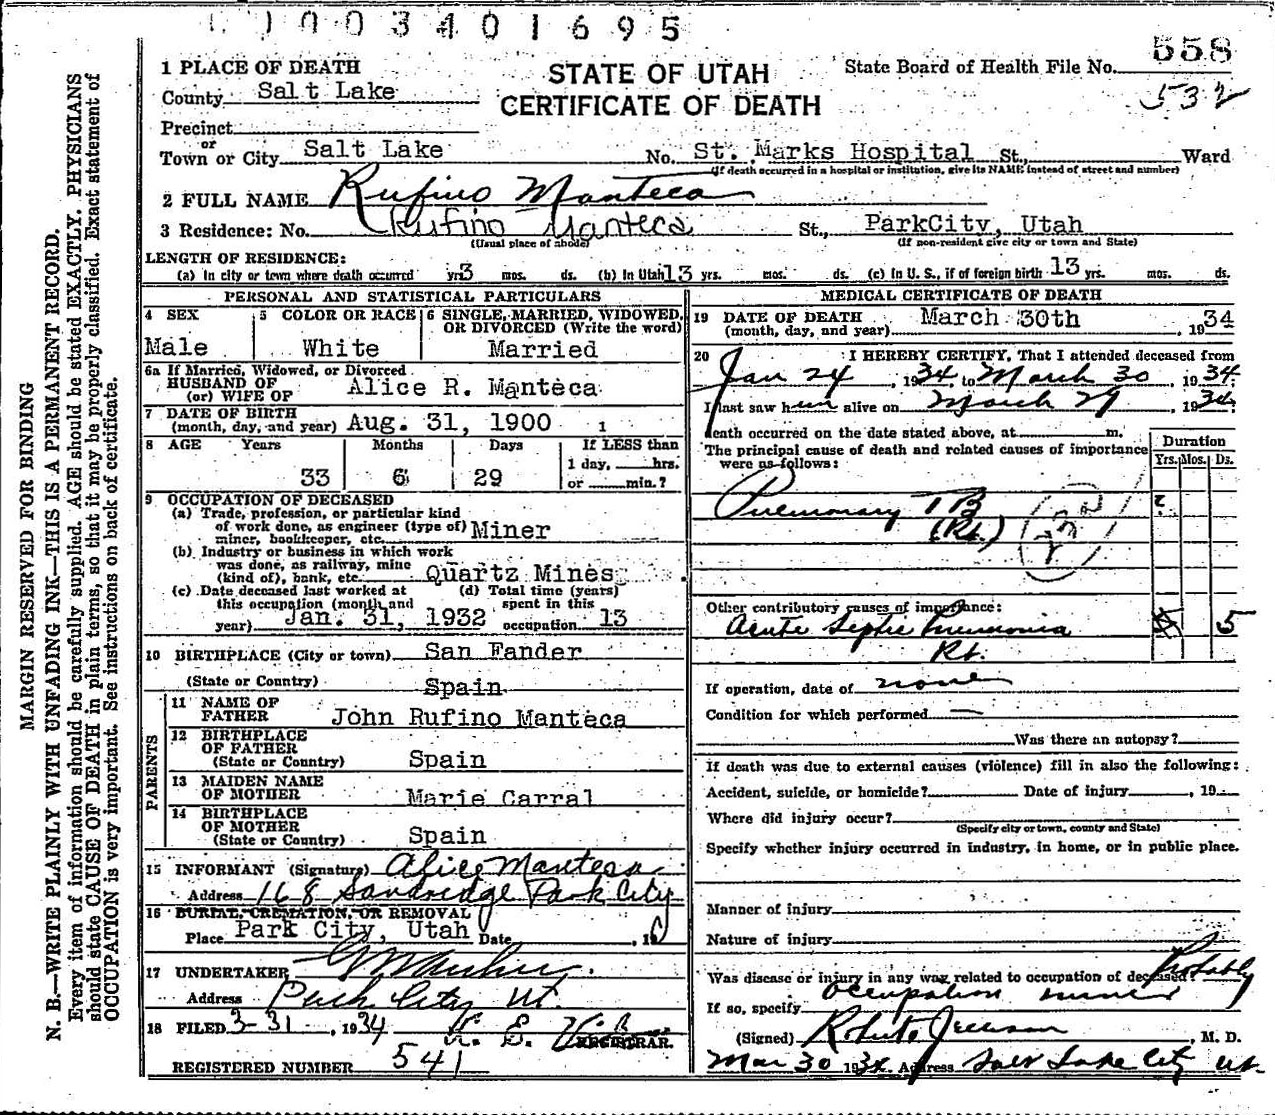 1003401695
558
1 PLACE OF DEATH
STATE OF UTAH
State Board of Health File No.
County Salt Lake
CERTIFICATE OF DEATH
532
Precinct
or
Town or City Salt Lake No. St. Marks Hospital St., Ward
(If death occurred in a hospital or institution, give its NAME instead of street and number)
2 FULL NAME Rufino Manteca
3 Residence: No. Rufino Manteca St., ParkCity, Utah
(Usual place of abode) (If non-resident give city or town and State)
LENGTH OF RESIDENCE:
(a) In city or town where death occurred yrs 3 mos. ds. (b) In Utah 13 yrs. mos. ds. (c) In U. S., if of foreign birth 13 yrs. mos. ds.
PERSONAL AND STATISTICAL PARTICULARS
4 SEX 5 COLOR OR RACE 6 SINGLE, MARRIED, WIDOWED, OR DIVORCED (Write the word)
Male White Married
6a If Married, Widowed, or Divorced
HUSBAND OF
(or) WIFE OF Alice R. Manteca
7 DATE OF BIRTH
(month, day, and year) Aug. 31, 1900
8 AGE Years Months Days If LESS than
1 day, hrs.
33 6 29 or min.?
9 OCCUPATION OF DECEASED
(a) Trade, profession, or particular kind
of work done, as engineer (type of) Miner
miner, bookkeeper, etc.
(b) Industry or business in which work
was done, as railway, mine
(kind of), bank, etc. Quartz Mines
(c) Date deceased last worked at (d) Total time (years)
this occupation (month and spent in this
year) Jan. 31, 1932 occupation 13
10 BIRTHPLACE (City or town) San Fander
(State or Country) Spain
PARENTS
11 NAME OF
FATHER John Rufino Manteca
12 BIRTHPLACE
OF FATHER
(State or Country) Spain
13 MAIDEN NAME
OF MOTHER Marie Carral
14 BIRTHPLACE
OF MOTHER
(State or Country) Spain
15 INFORMANT (Signature) Alice Manteca
Address 168 Sandridge Park City
16 BURIAL, CREMATION, OR REMOVAL
Place Park City, Utah Date , 19
17 UNDERTAKER
Address Park City Ut
18 FILED 3-31, 1934
REGISTRAR.
REGISTERED NUMBER 541
MEDICAL CERTIFICATE OF DEATH
19 DATE OF DEATH March 30th
(month, day, and year) , 1934
20 I HEREBY CERTIFY, That I attended deceased from
Jan 24, 1934 to March 30, 1934.
I last saw him alive on March 29 1934.
death occurred on the date stated above, at m.
The principal cause of death and related causes of importance
were as follows:
Duration
Yrs. Mos. Ds.
Pulmonary TB
(Rt.)
Other contributory causes of importance:
Acute Septic Pneumonia 5
Rt.
If operation, date of none
Condition for which performed —
Was there an autopsy?
If death was due to external causes (violence) fill in also the following:
Accident, suicide, or homicide? Date of injury , 19
Where did injury occur?
(Specify city or town, county and State)
Specify whether injury occurred in industry, in home, or in public place.
Manner of injury
Nature of injury
Was disease or injury in any way related to occupation of deceased? Probably
If so, specify occupation miner
(Signed) , M. D.
Mar 30 1934. Address Salt Lake City Ut.
MARGIN RESERVED FOR BINDING
N. B.—WRITE PLAINLY WITH UNFADING INK—THIS IS A PERMANENT RECORD.
Every item of information should be carefully supplied. AGE should be stated EXACTLY. PHYSICIANS
should state CAUSE OF DEATH in plain terms, so that it may be properly classified. Exact statement of
OCCUPATION is very important. See instructions on back of certificate.